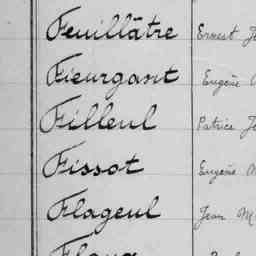 Feuillâtre Ernest
Fieurgant Eugène
Filleul Patrice
Fissot Eugène
Flageul Jean M